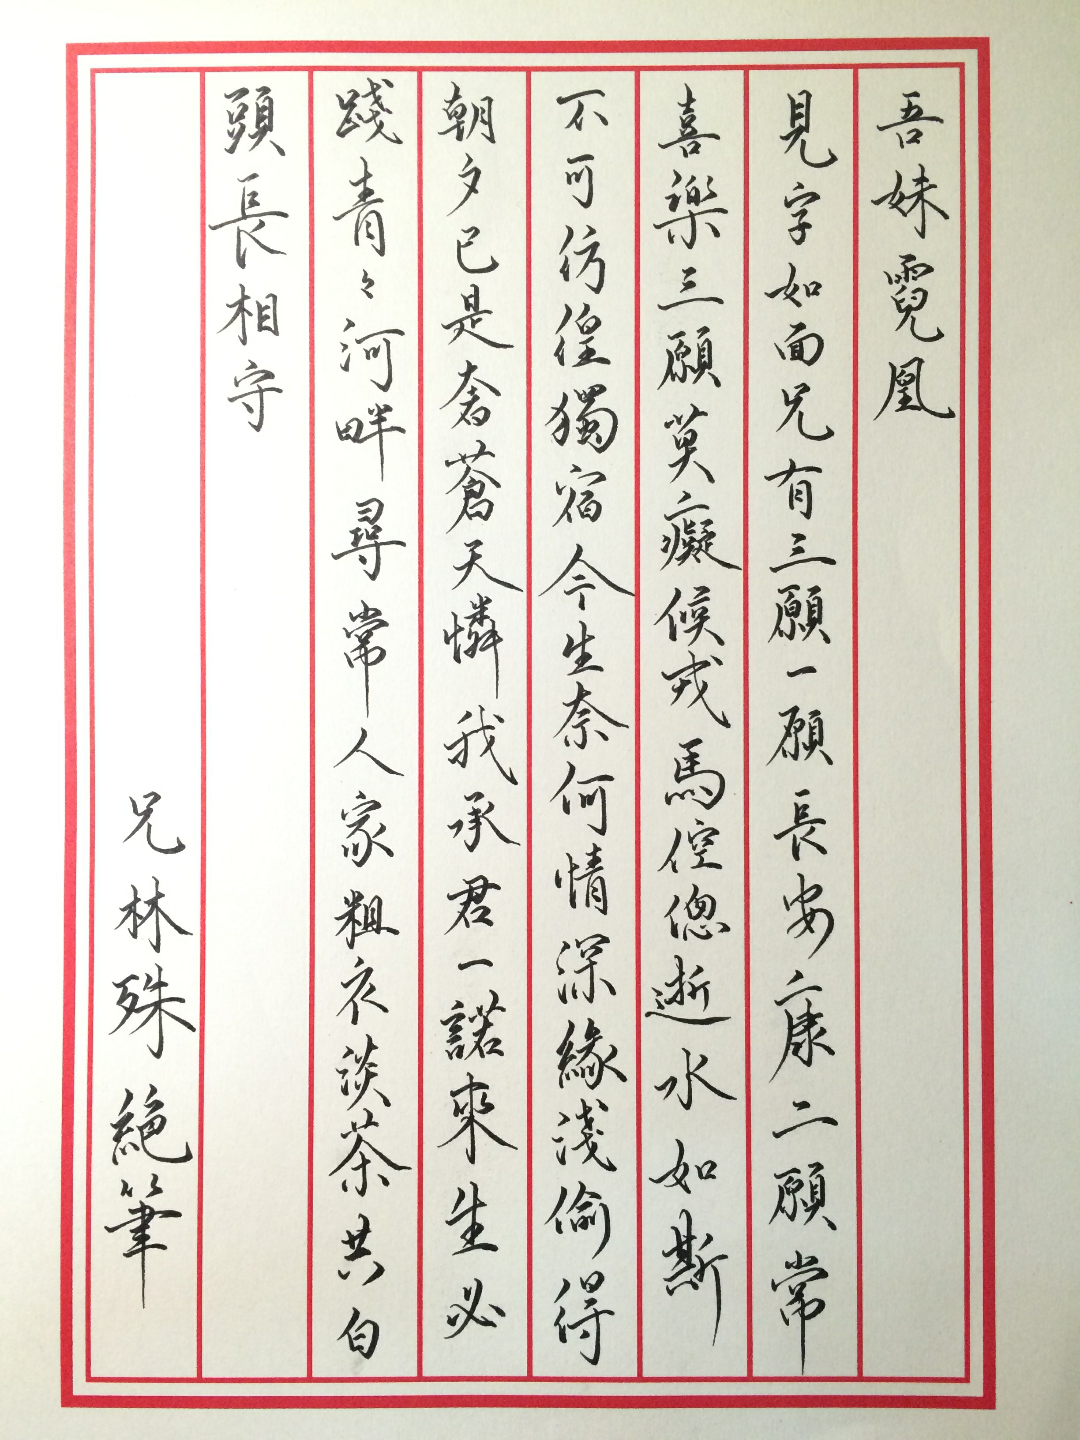 吾妹霓凰
見字如面兄有三願一願長安康二願常
喜樂三願莫癡候戎馬倥傯逝水如斯
不可彷徨獨宿今生奈何情深緣淺偷得
朝夕已是奢蒼天憐我承君一諾來生必
踐青々河畔尋常人家粗衣淡茶共白
頭長相守
兄林殊絕筆